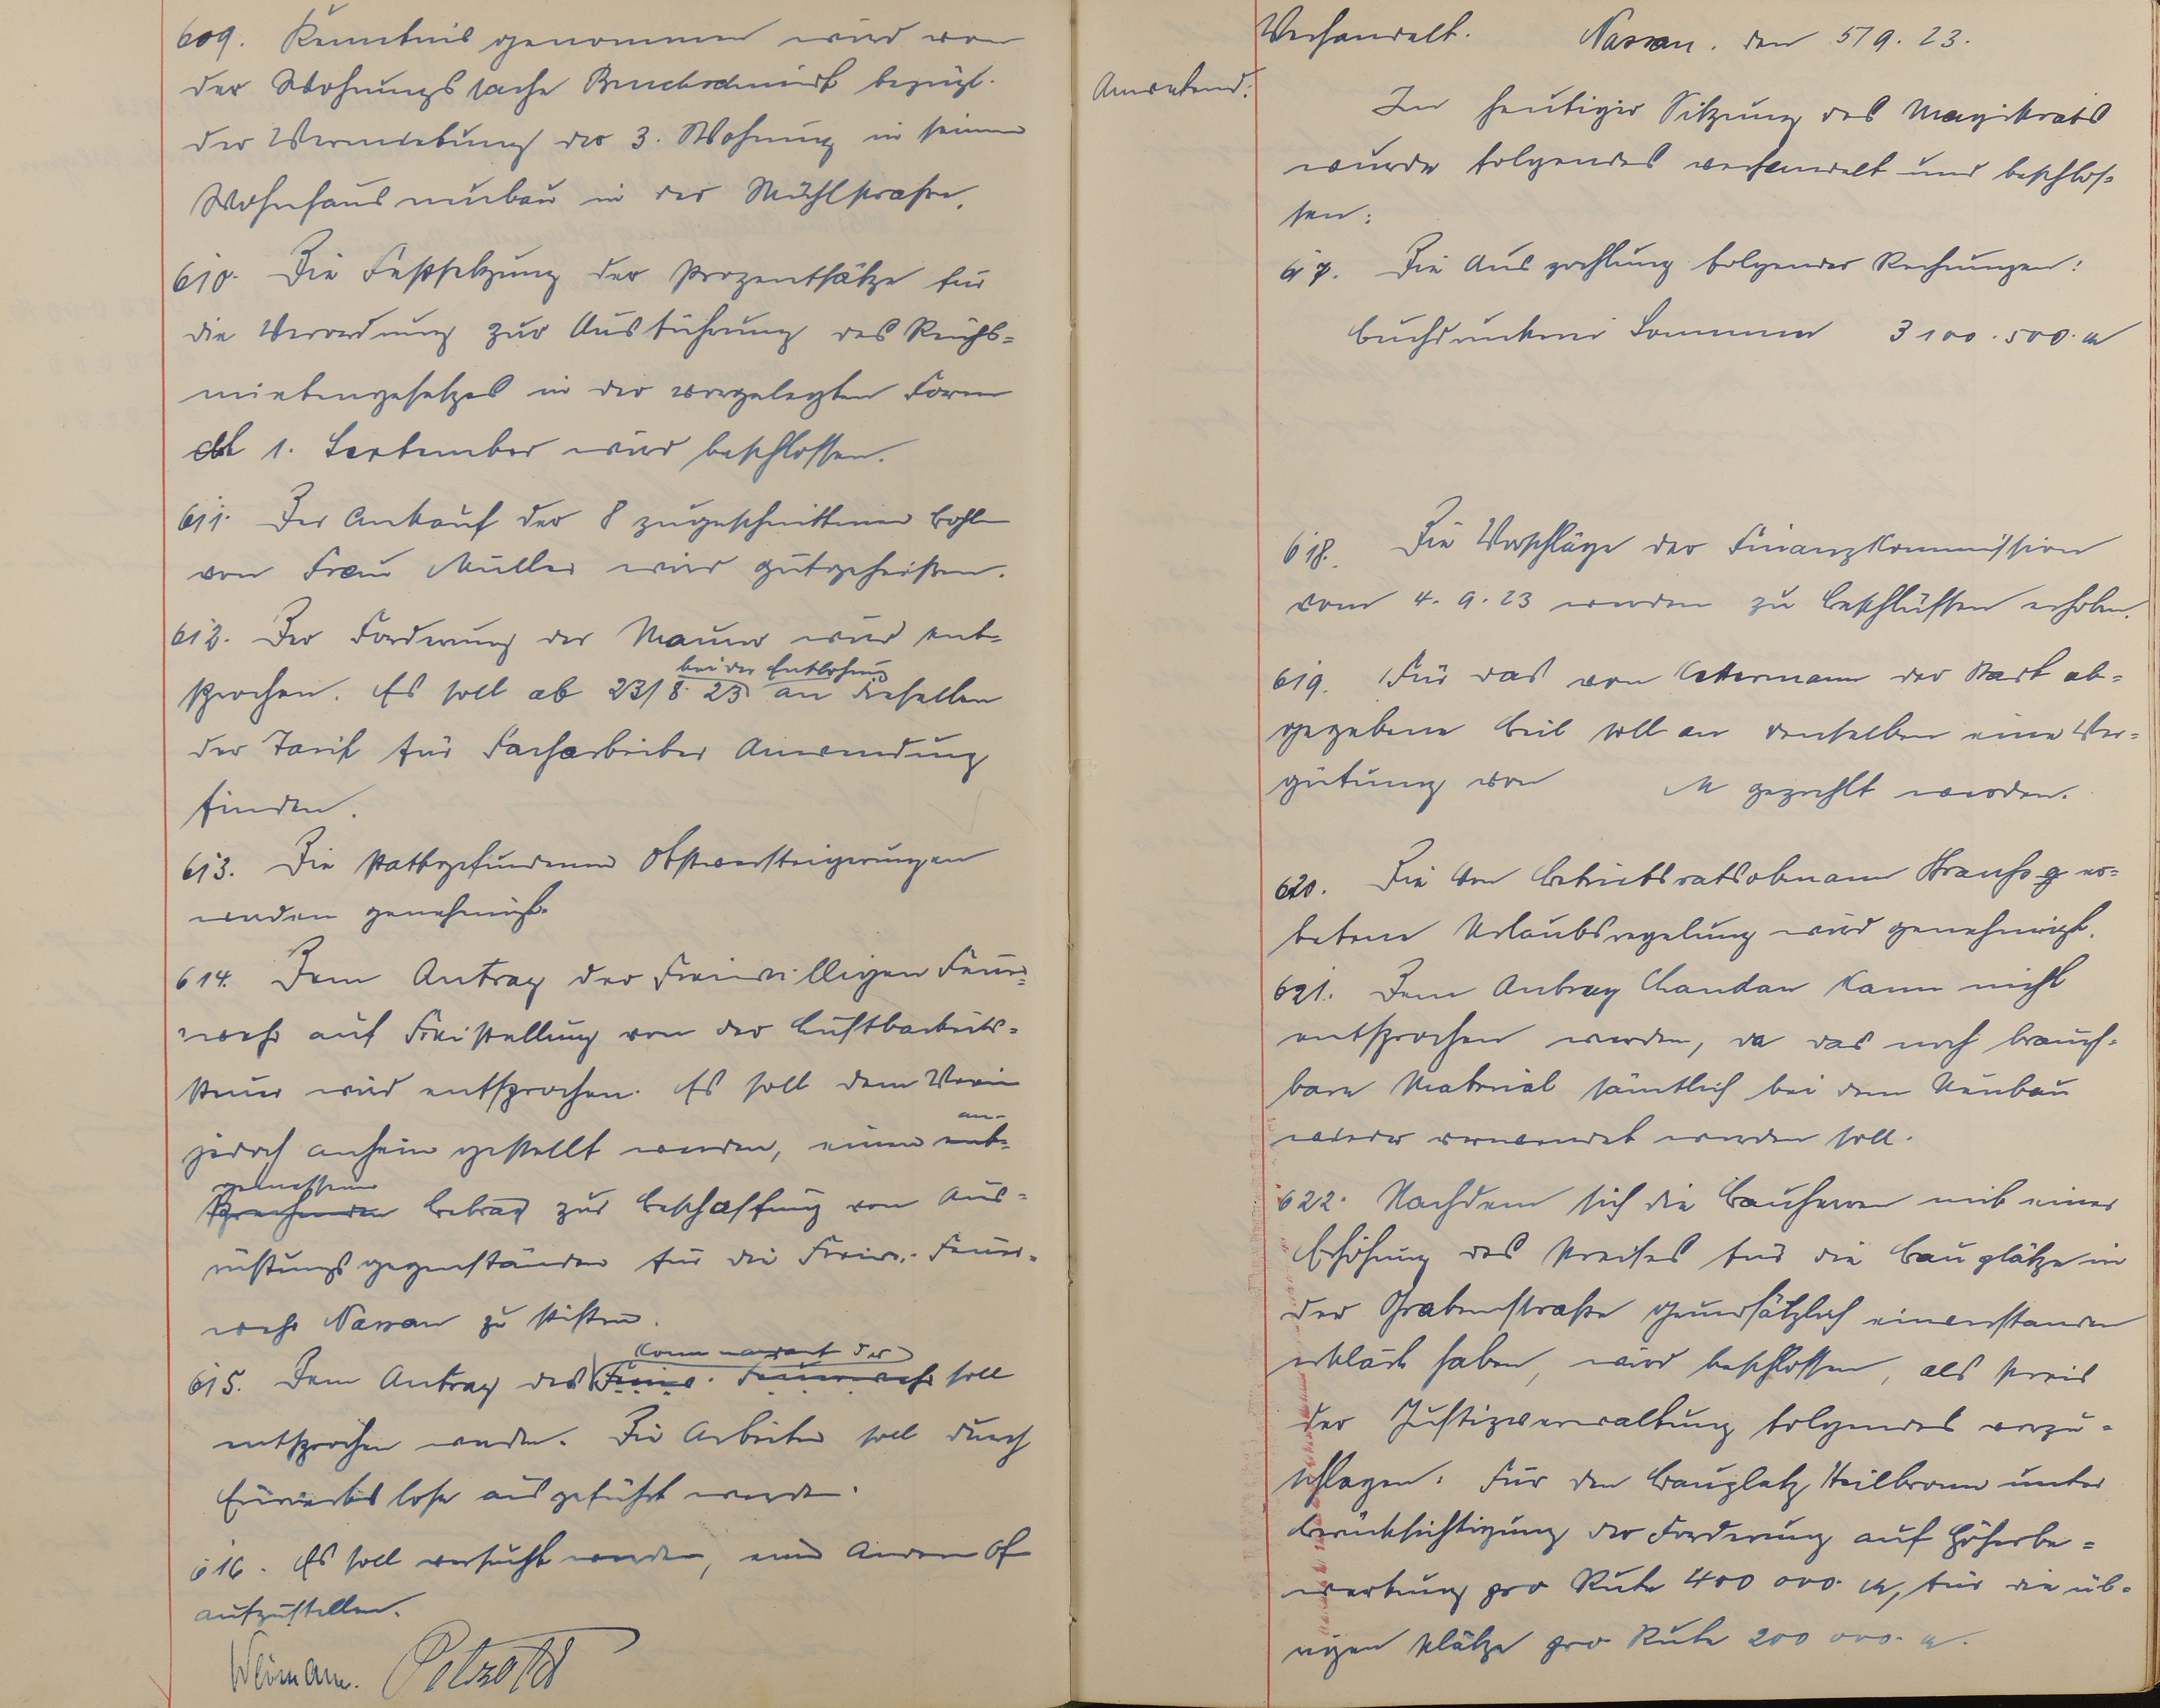 609. Kenntnis genommen wird von
der Wohnungssache Bruchschmidt bezügl.
der Vermietung der 3. Wohnung in seinem
Wohnhausneubau in der Mühlstrasse.
610. Die Festsetzung der Prozentsätze für
die Verordnung zur Ausführung des Reichs=
mietengesetzes in der vorgelegten Form
ab 1. September wird beschlossen.
611. Der Ankauf der 8 zugeschnittenen Bohlen
von Frau Müller wird gutgeheißen.
612. Der Forderung der Maurer wird ent=
bei der Entlohnung
sprochen. Es soll ab 23/8. 23 an dieselben
der Tarif für Facharbeiter Anwendung
finden.
613. Die stattgefundenen Obstversteigerungen
werden genehmigt.
614. Dem Antrag der Freiwilligen Feuer=
wehr auf Freistellung von der Lustbarkeits=
steuer wird entsprochen. Es soll dem Verein
an-
jedoch anheim gestellt werden, einen ent=
gemessenen
sprechenden Betrag zur Beschaffung von Aus=
rüstungsgegenständen für die Freiw. Feuer=
wehr Nassau zu stiften.
Kommandant der
615. Dem Antrag des Freiw. Feuerwehr soll
entsprochen werden. Die Arbeiten soll durch
Erwerbslose ausgeführt werden.
616. Es soll versucht werden, einen anderen Ofen
aufzustellen.
Petzold
Verhandelt. Nassau. den 5/9. 23.
Anwesend:
In heutiger Sitzung des Magistrats
wurde folgendes verhandelt und beschlos=
sen:
617. Die Auszahlung folgender Rechnungen:
Buchdruckerei Sommer 3 100. 500. M
618. Die Vorschläge der Finanzkommission
vom 4. 9. 23 werden zu Beschlüssen erhoben.
619. Für das von Ackermann der Stadt ab=
gegebene Beil soll an denselben eine Ver=
gütung von M gezahlt werden.
620. Die von Betriebsratsobmann er=
betene Urlaubsregelung wird genehmigt.
621. Dem Antrag kann nicht
entsprochen werden, da das noch brauch=
bare Material sämtlich bei dem Neubau
wieder verwendet werden soll.
622. Nachdem sich die Bauherren mit einer
Erhöhung des Preises für die Bauplätze in
der Grabenstraße grundsätzlich einverstanden
erklärt haben, wird beschlossen, als Preis
der Justizverwaltung folgendes vorzu=
schlagen: Für den Bauplatz Heilbronn unter
Berücksichtigung der Forderung auf Höherbe=
wertung pro Rute 400 000. M, für die üb=
rigen Plätze pro Rute 200 000. M.